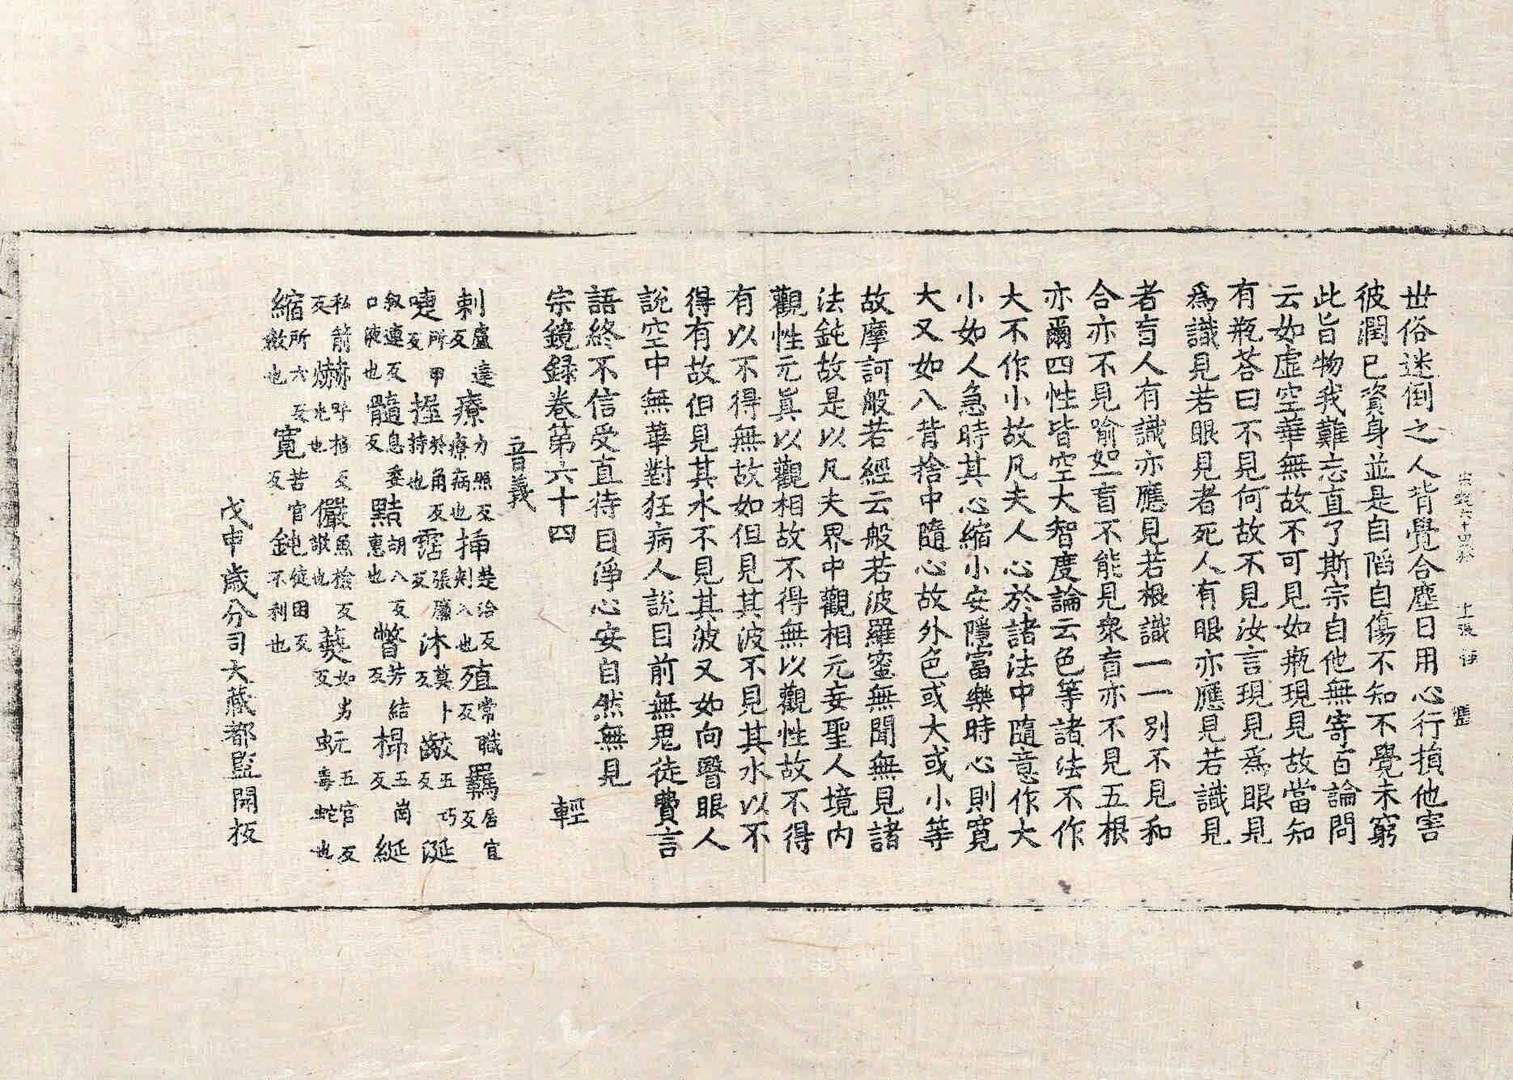 世俗迷倒之人背覺合塵日用心行損他害
彼潤已資身並是自陷自傷不知不覺未窮
此旨物我難忘直了斯宗自他無寄百論問
云如虛空華無故不可見如瓶現見故當知
有瓶荅曰不見何故不見汝言現見爲眼見
爲識見若眼見者死人有眼亦應見若識見
者盲人有識亦應見若根識一一別不見和
合亦不見喻如一盲不能見衆盲亦不見五根
亦爾四性皆空大智度論云色等諸法不作
大不作小故凡夫人心於諸法中隨意作大
小如人急時其心縮小安隱富樂時心則寬
大又如八背捨中隨心故外色或大或小等
故摩訶般若經云般若波羅蜜無聞無見諸
法鈍故是以凡夫界中觀相元妄聖人境內
觀性元眞以觀相故不得無以觀性故不得
有以不得無故如但見其波不見其水以不
得有故但見其水不見其波又如向瞖眼人
說空中無華對狂病人說目前無鬼徒費言
語終不信受直待目淨心安自然無見
宗鏡錄卷第六十四 輕
音義
剌盧達反療力照反療病也揷楚洽反刺入也殖常職反羈居宜反
唼所甲反握於角反持也霑張廉反沐莫卜反齩五巧反涎
叙連反口液也髓息委反黠胡八反惠也瞥芳結反棉五崗反綖
私箭反㷿野招反光也儼魚檢反㒈也㷼如劣反蚖五官反毒蛇也
縮所六反斂也寬苦官反鈍徒困反不利也
戊申歲分司大藏都監開板